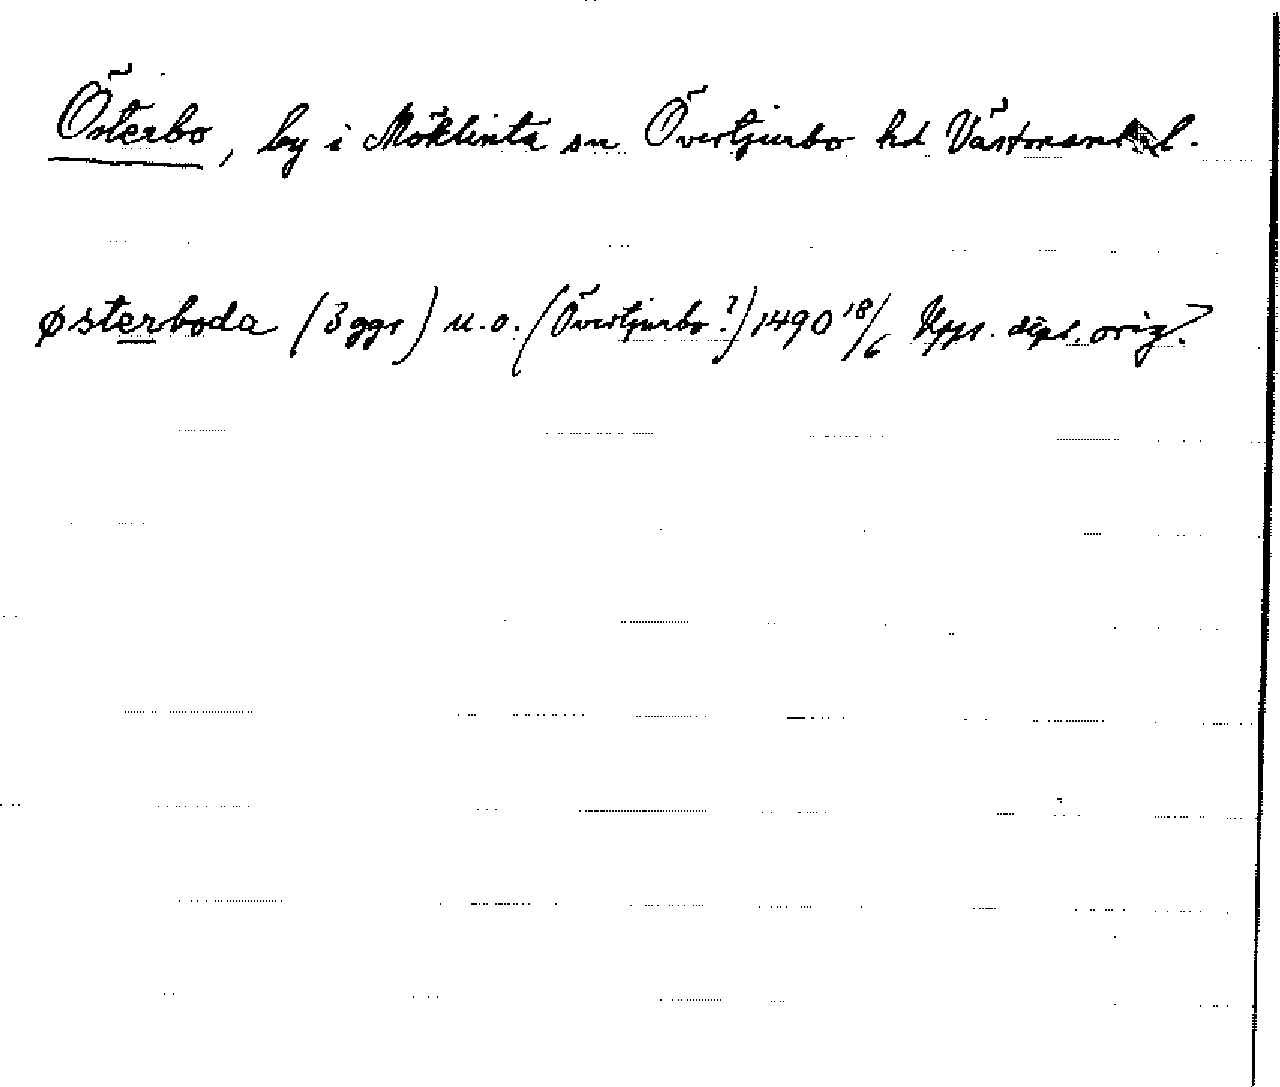 Österbo, by i Möklinta sn Övertjurbo hd Västmanl.
østerboda (3 ggr) u.o. (Övertjurbo?) 1490 18/6 Upps. dipl. orig.?